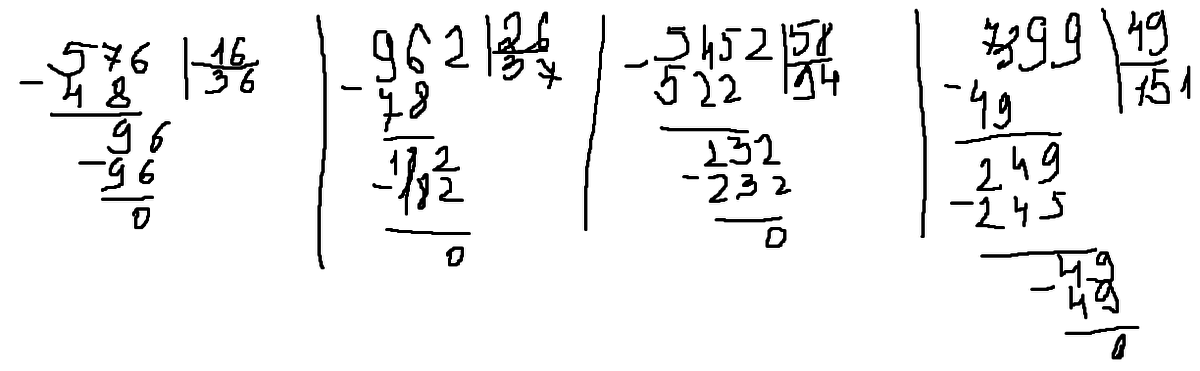 576 | 16
- 48 36
96
- 96
0
962 | 26
- 78 37
182
- 182
0
5452 | 58
- 522 94
232
- 232
0
7399 | 49
- 49 151
249
- 245
49
- 49
0